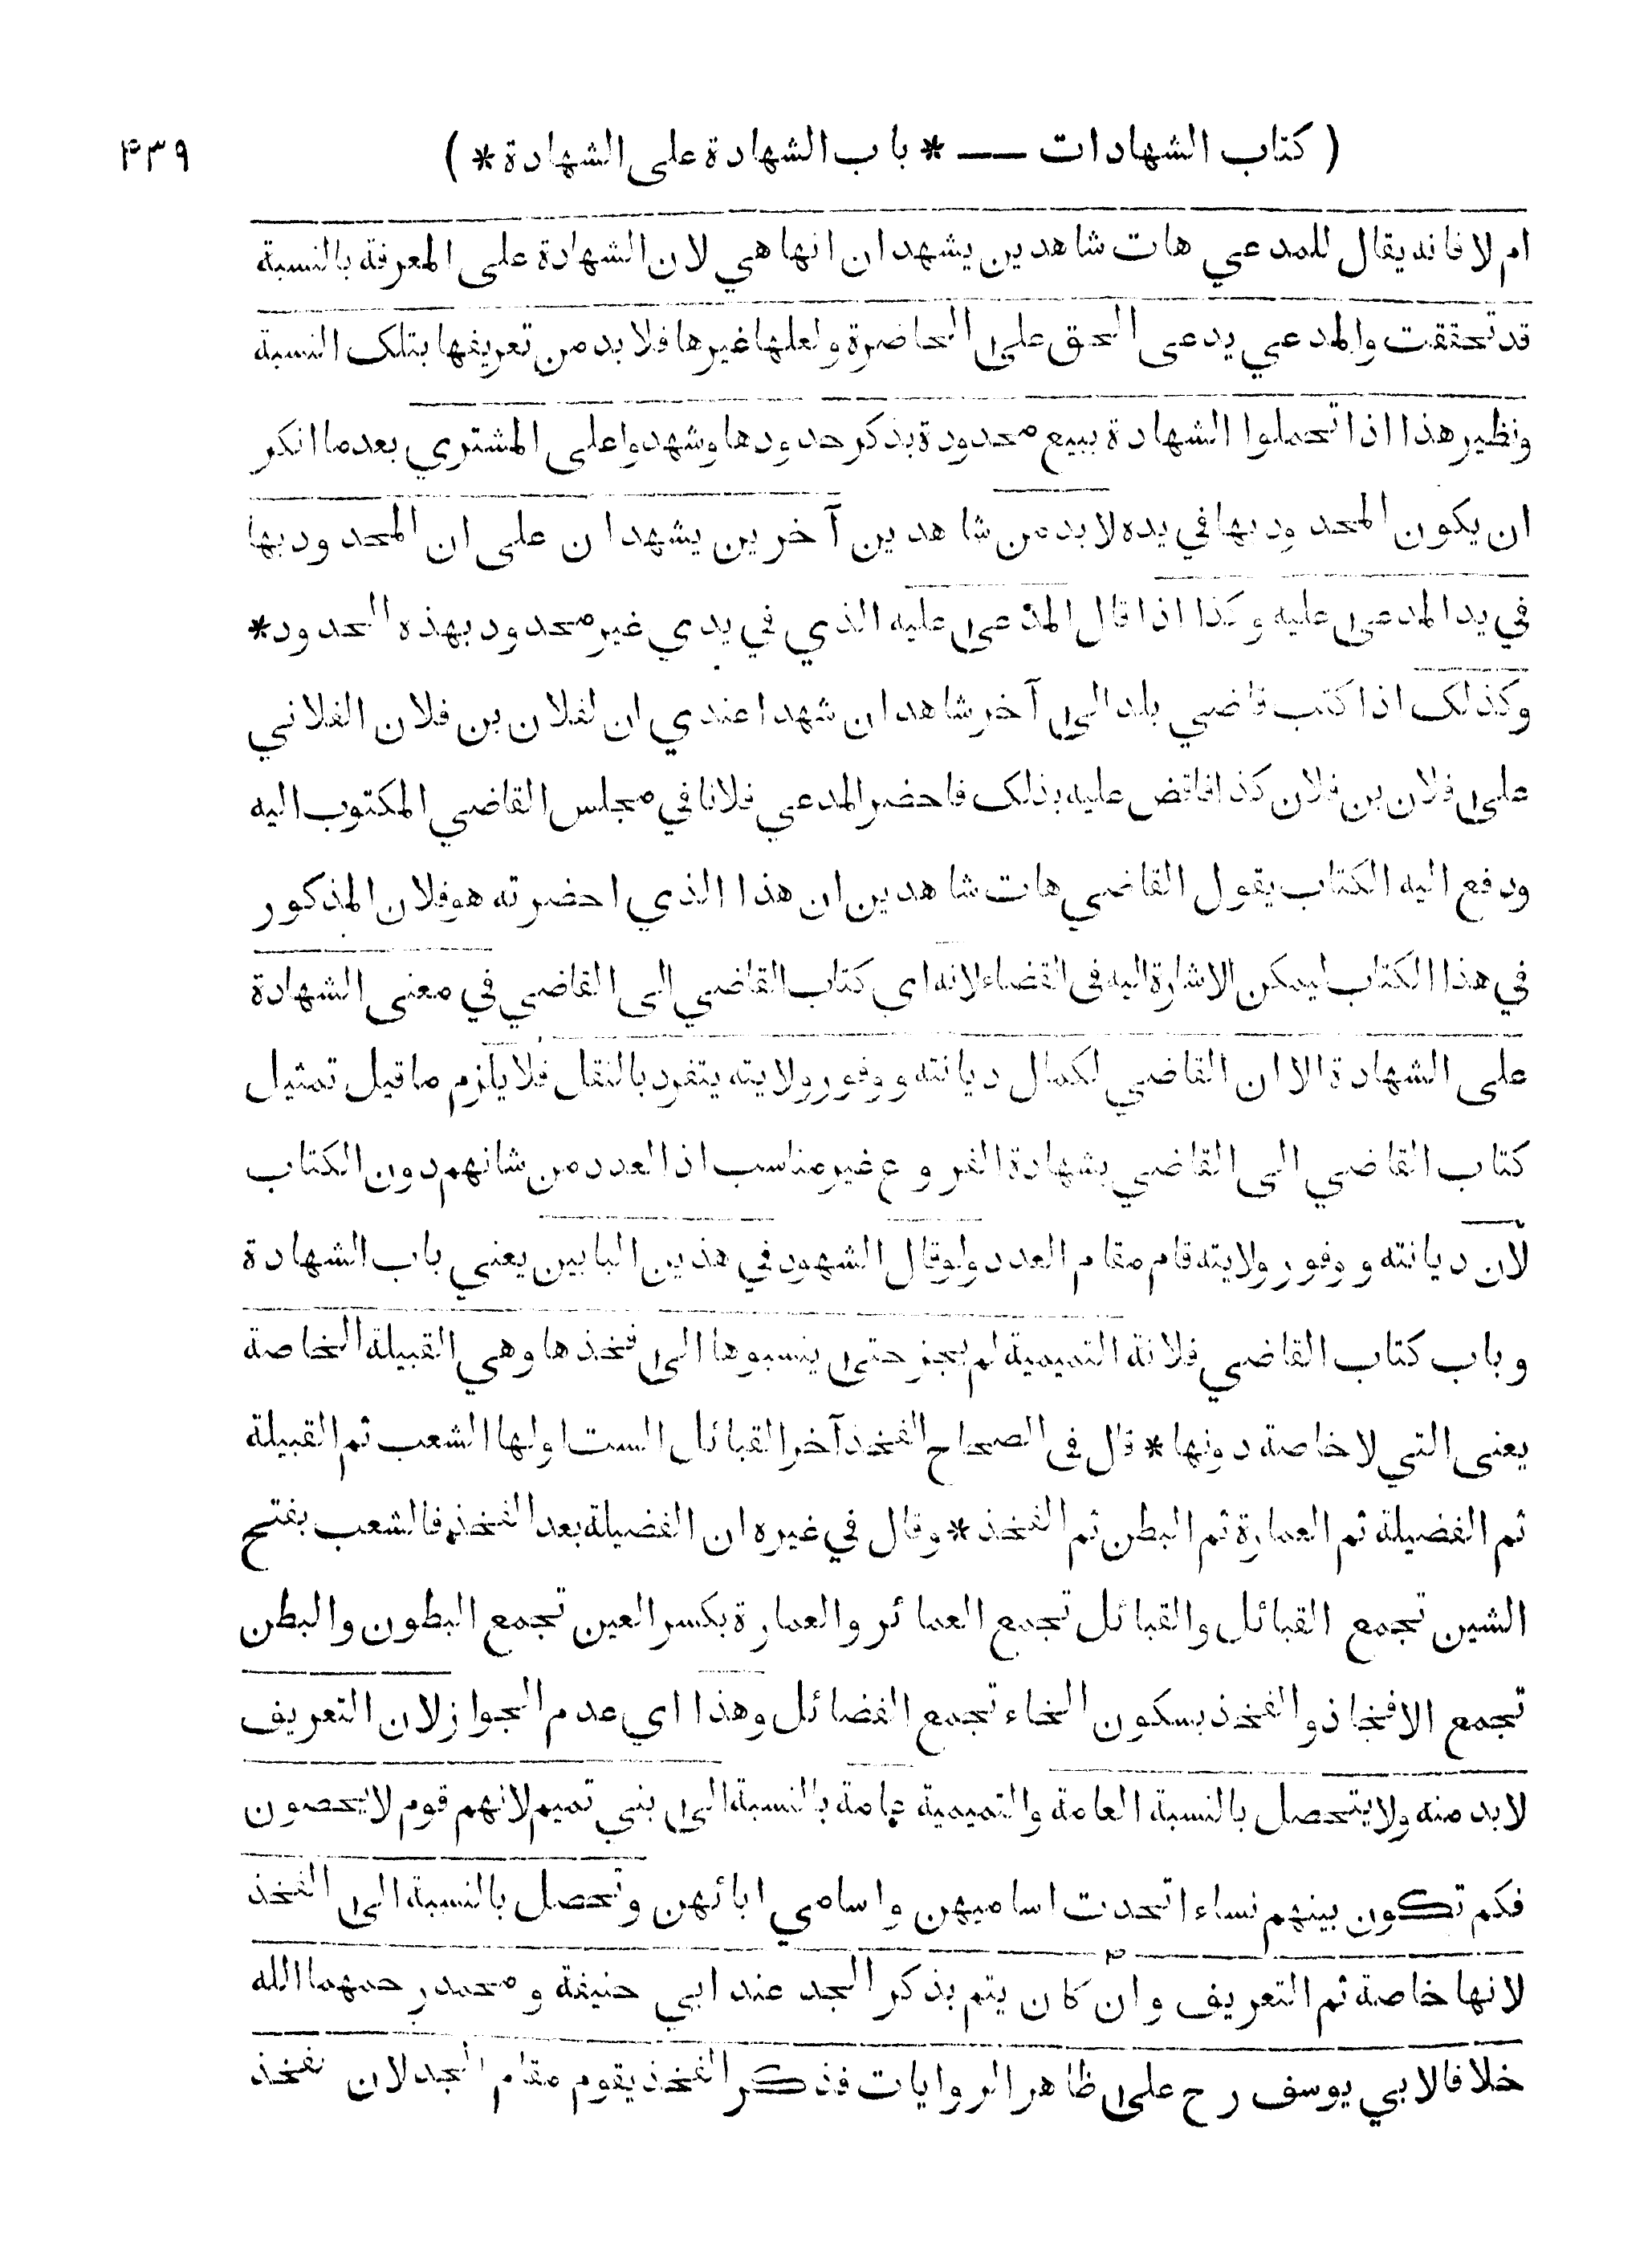 ( كتاب الشهادات ــــ * باب الشهادة على الشهادة * ) ۴۳۹
ام لا فانه يقال للمدعي هات شاهدين يشهدان انها هي لان الشهادة على المعرفة بالنسبة
قد تحققت والمدعي يدعى الحق على الحاضرة ولعلها غيرها فلا بد من تعريفها بتلك النسبة
ونظير هذا اذا تحملوا الشهادة ببيع محدودة بذكر حدودها وشهدوا على المشتري بعد ما انكر
ان يكون المحدود بها في يده لا بد من شاهدين آخرين يشهدان على ان المحدود بها
في يد المدعى عليه وكذا اذا قال المدعى عليه الذي في يدي غير محدود بهذه الحدود *
وكذلك اذا كتب قاضي بلد الى آخر شاهدان شهدا عندي ان لفلان بن فلان الفلاني
على فلان بن فلان كذا فاقض عليه بذلك فاحضر المدعي فلانا في مجلس القاضي المكتوب اليه
ودفع اليه الكتاب يقول القاضي هات شاهدين ان هذا الذي احضرته هو فلان المذكور
في هذا الكتاب ليمكن الاشارة اليه فى القضاء لانه اى كتاب القاضي الى القاضي في معنى الشهادة
على الشهادة الا ان القاضي لكمال ديانته ووفور ولايته يتفرد بالنقل فلا يلزم ما قيل تمثيل
كتاب القاضي الى القاضي بشهادة الفروع غير مناسب اذ العدد من شانهم دون الكتاب
لأن ديانته ووفور ولايته قام مقام العدد ولو قال الشهود في هذين البابين يعني باب الشهادة
وباب كتاب القاضي فلانة التميمية لم يجز حتى ينسبوها الى فخذها وهي القبيلة الخاصة
يعنى التي لا خاصة دونها * قال فى الصحاح الفخذ آخر القبائل الست اولها الشعب ثم القبيلة
ثم الفضيلة ثم العمارة ثم البطن ثم الفخذ * وقال في غيره ان الفضيلة بعد الفخذ فالشعب بفتح
الشين تجمع القبائل والقبائل تجمع العمائر والعمارة بكسر العين تجمع البطون والبطن
تجمع الافخاذ والفخذ بسكون الخاء تجمع الفضائل وهذا اي عدم الجواز لان التعريف
لا بد منه ولا يتحصل بالنسبة العامة والتميمية عامة بالنسبة الى بني تميم لانهم قوم لا يحصون
فكم تكون بينهم نساء اتحدت اساميهن واسامي ابائهن وتحصل بالنسبة الى الفخذ
لانها خاصة ثم التعريف وان كان يتم بذكر الجد عند ابي حنيفة ومحمد رحمهما الله
خلافا لابي يوسف رح على ظاهر الروايات فذكر الفخذ يقوم مقام الجد لان الفخذ